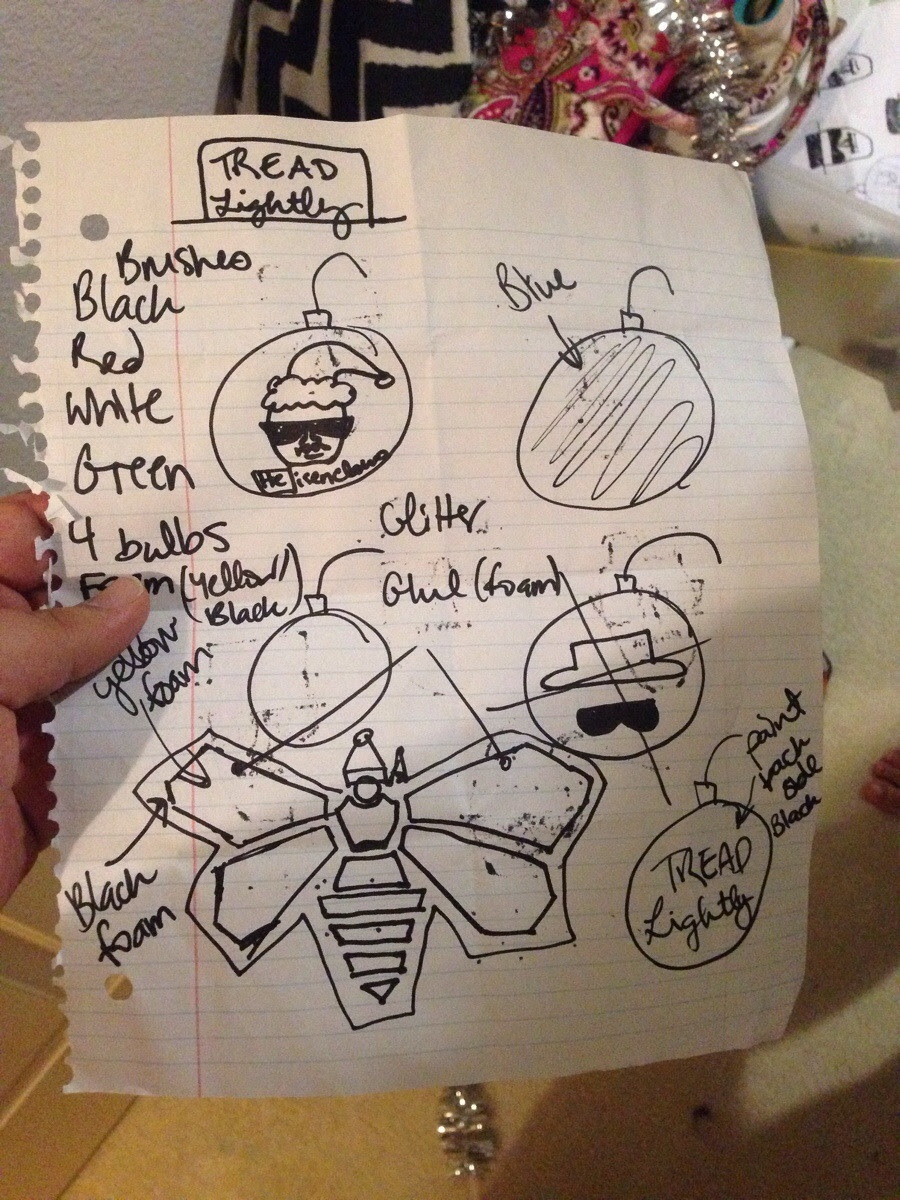 TREAD
Lightly
Brushes
Black
Red
White
Green
4 bulbs
Foam (yellow/
Black)
yellow
foam
Black
foam
Heisenclaus
Blue
Glitter
Glue (foam)
paint
back
side
Black
TREAD
Lightly